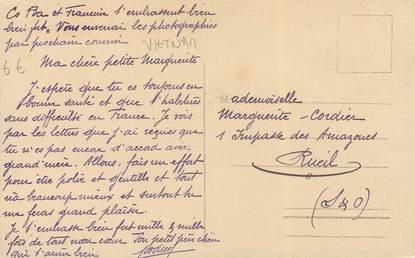 Co Ba et Francin t'embrassent bien
bien fort. Vous enverrai les photographies
par prochain courrier
VIETNAM
6€
Ma chère petite Marguerite
J'espère que tu es toujours en
bonne santé et que t'habitues
sans difficulté en France. Je vois
par les lettres que j'ai reçues que
tu n'es pas encore d'accord avec
grand'mère. Allons, fais un effort
pour être polie et gentille et tout
ira beaucoup mieux et surtout tu
me feras grand plaisir.
Je t'embrasse bien fort mille & mille
fois de tout mon cœur Ton petit père chéri
qui t'aime bien
Mademoiselle
Marguerite Cordier
1 Impasse des Amazones
Rueil
(S & O)